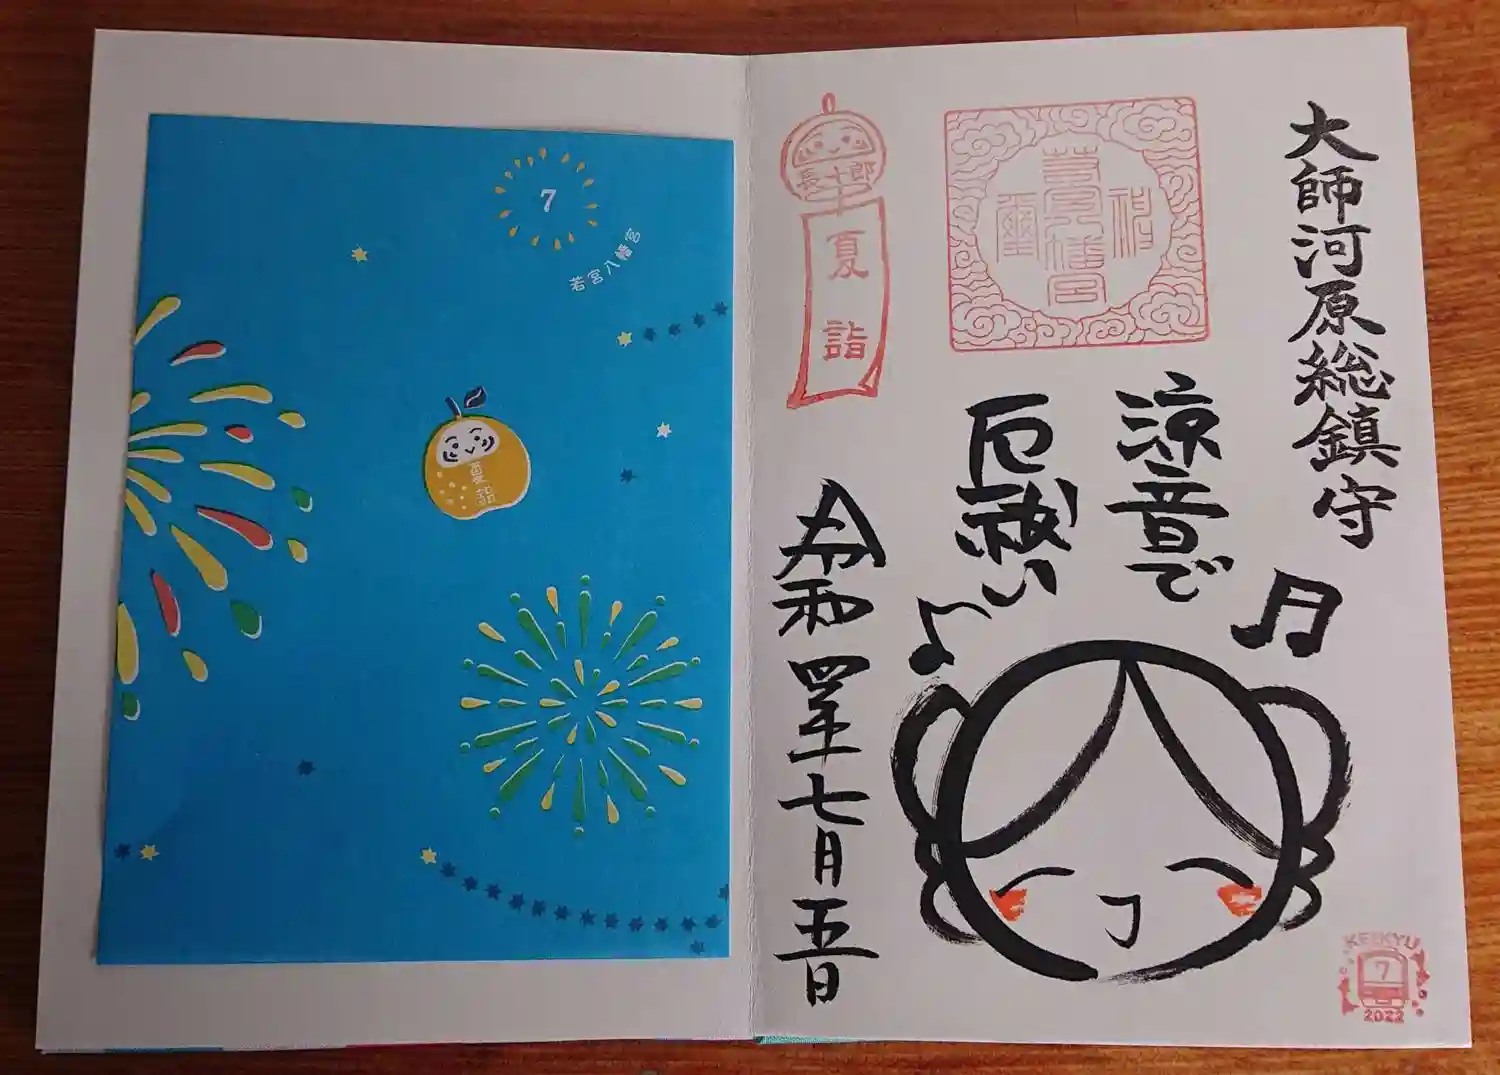 7
若宮八幡宮
夏詣
大師河原総鎮守
涼音で
厄祓い
令和四年七月五日
長十郎
夏詣
若宮八幡宮
神璽
KEIKYU
7
2022